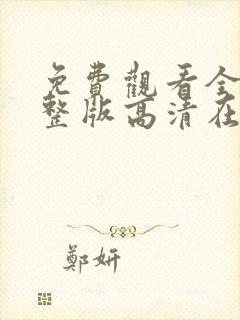 免費觀看全
整版高清在
鄭妍